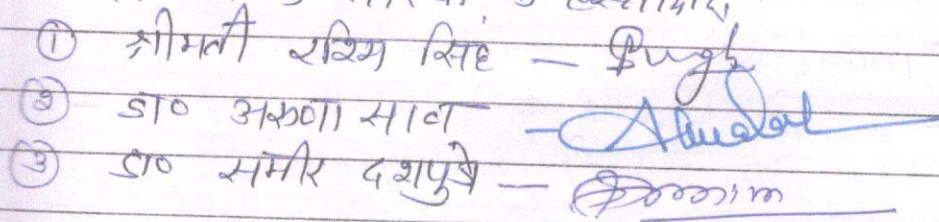 ① श्रीमती रश्मि सिंह — Singh
② डा० अरुणा साव —
③ डा० समीर दशपुत्रे —